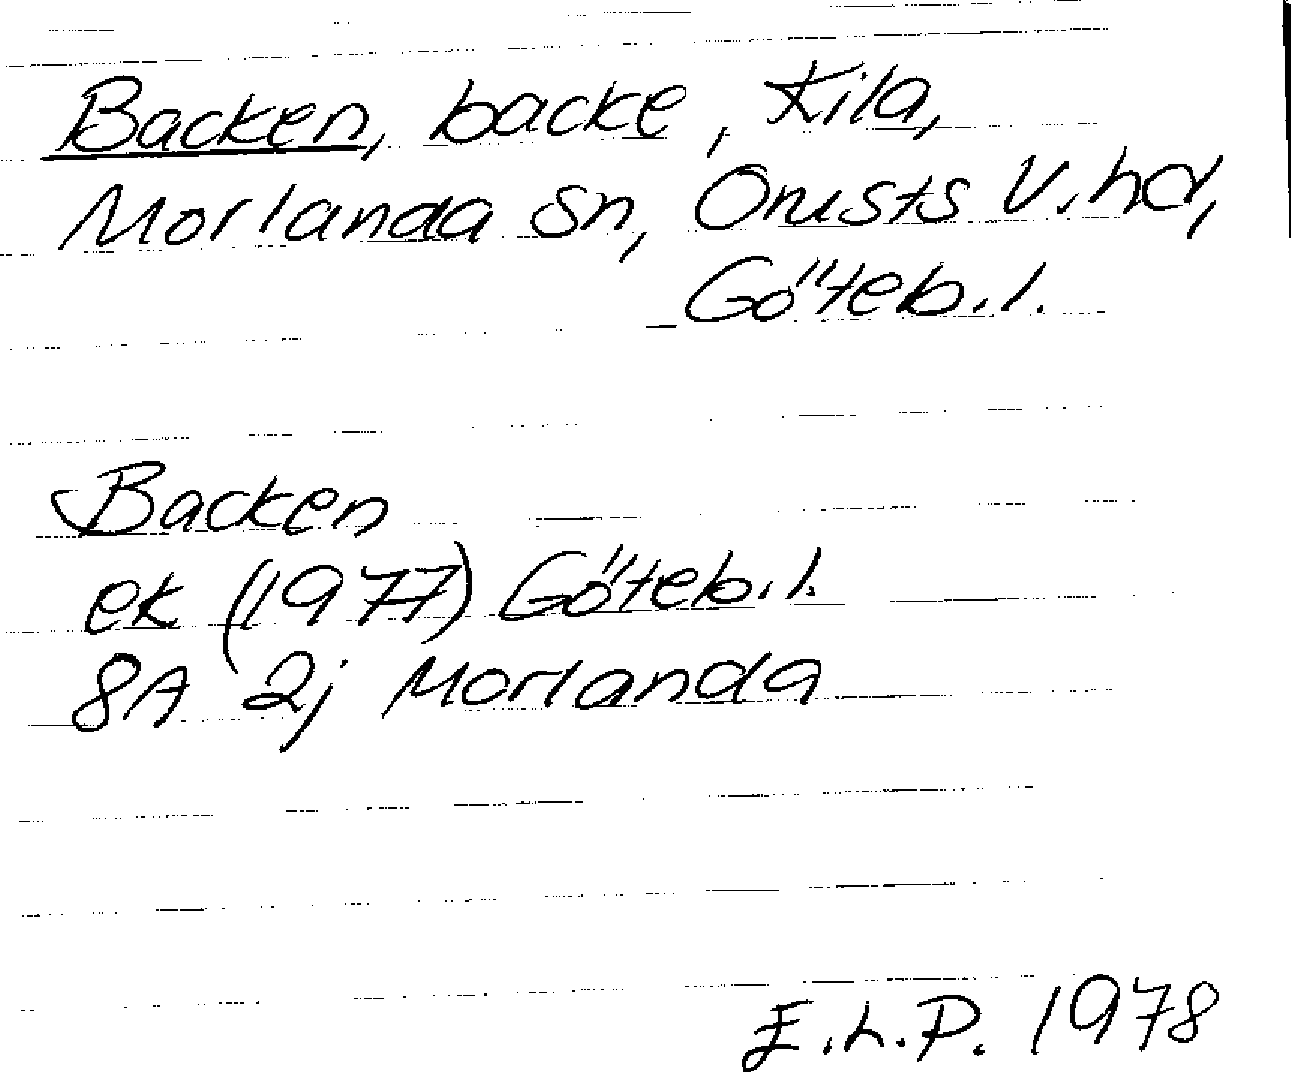 Backen, backe, Kila,
Morlanda sn, Orusts V. hd,
Göteb. l.
Backen
ek (1977) Göteb. l.
8A 2j Morlanda
E.L.P. 1978